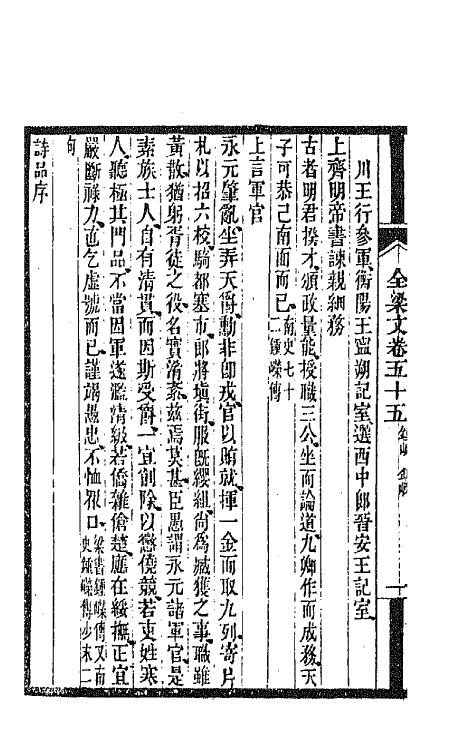 川王行參軍衡陽王寧朔記室選西中郎晉安王記室
上齊明帝書諫親細務
古者明君揆才頒政量能授職三公坐而論道九卿作而成務天
子可恭己南面而已南史七十二鍾嶸傳
上言軍官
永元肇亂坐弄天爵勳非卽戎官以賄就揮一金而取九列寄片
札以招六校騎都塞市郎將塡街服旣纓組尙爲臧獲之事職雖
黃散猶躬胥徒之役名實淆紊茲焉莫甚臣愚謂永元諸軍官是
素族士人自有淸貫而因斯受爵一宜削除以懲僥競若吏姓寒
人聽極其門品不當因軍遂濫淸級若僑雜傖楚應在綏撫正宜
嚴斷祿力直乞虛號而已謹竭愚忠不恤眾口梁書鍾嶸傳又南史鍾嶸傳少末二
句
詩品序
全梁文卷五十五 鍾嶸